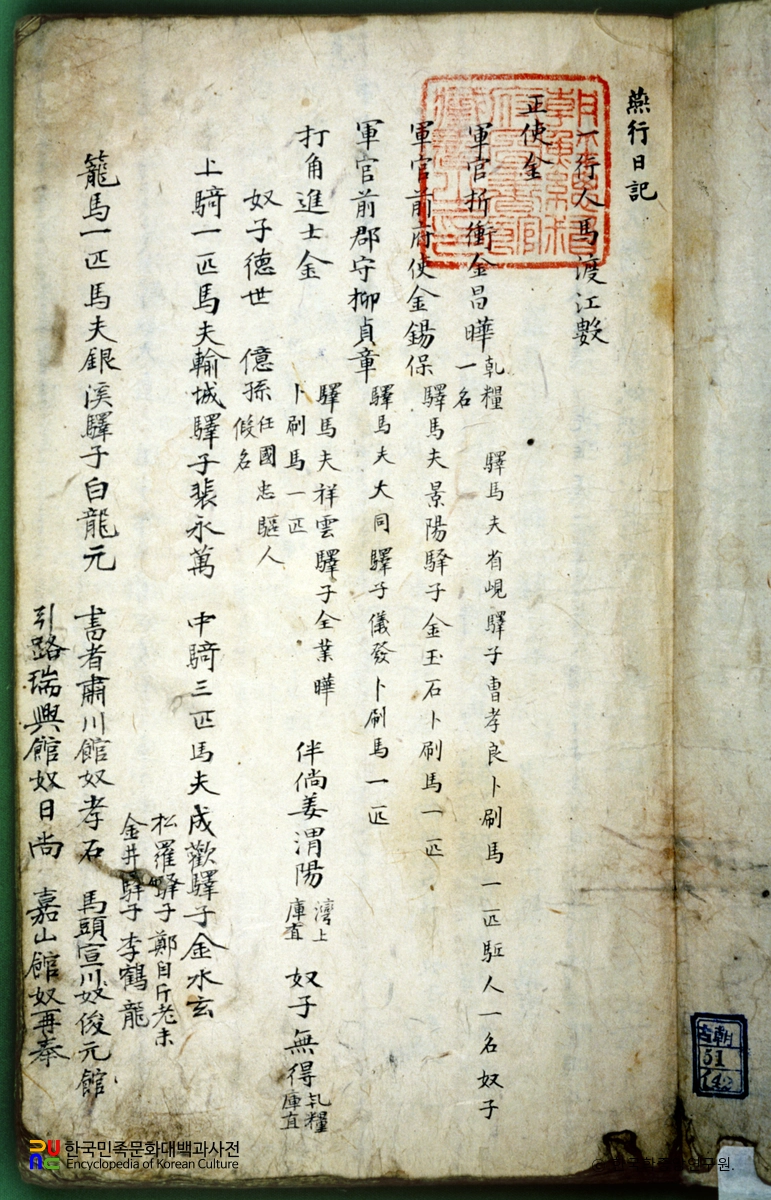 燕行日記
一行人馬渡江數
正使金
軍官折衝金昌曄 乹糧一名 驛馬夫省峴驛子曺孝良卜刷馬一匹駈人一名奴子
軍官前府使金錫保 驛馬夫景陽驛子金玉石卜刷馬一匹
軍官前郡守柳貞章 驛馬夫大同驛子儀發卜刷馬一匹
打角進士金 驛馬夫祥雲驛子全業曄 卜刷馬一匹 伴倘姜渭陽 灣上庫直 奴子無得 乹糧庫直
奴子德世 億孫 任國忠驅人假名
上騎一匹馬夫輸城驛子裴永萬 中騎三匹馬夫成歡驛子金水玄
松羅驛子鄭自斤老未
金井驛子李鶴龍
籠馬一匹馬夫銀溪驛子白龍元 書者肅川館奴孝石 馬頭宣川奴俊元館
引路瑞興館奴日尚 嘉山館奴再奉
古朝
51
142
한국민족문화대백과사전
Encyclopedia of Korean Culture
연구원.